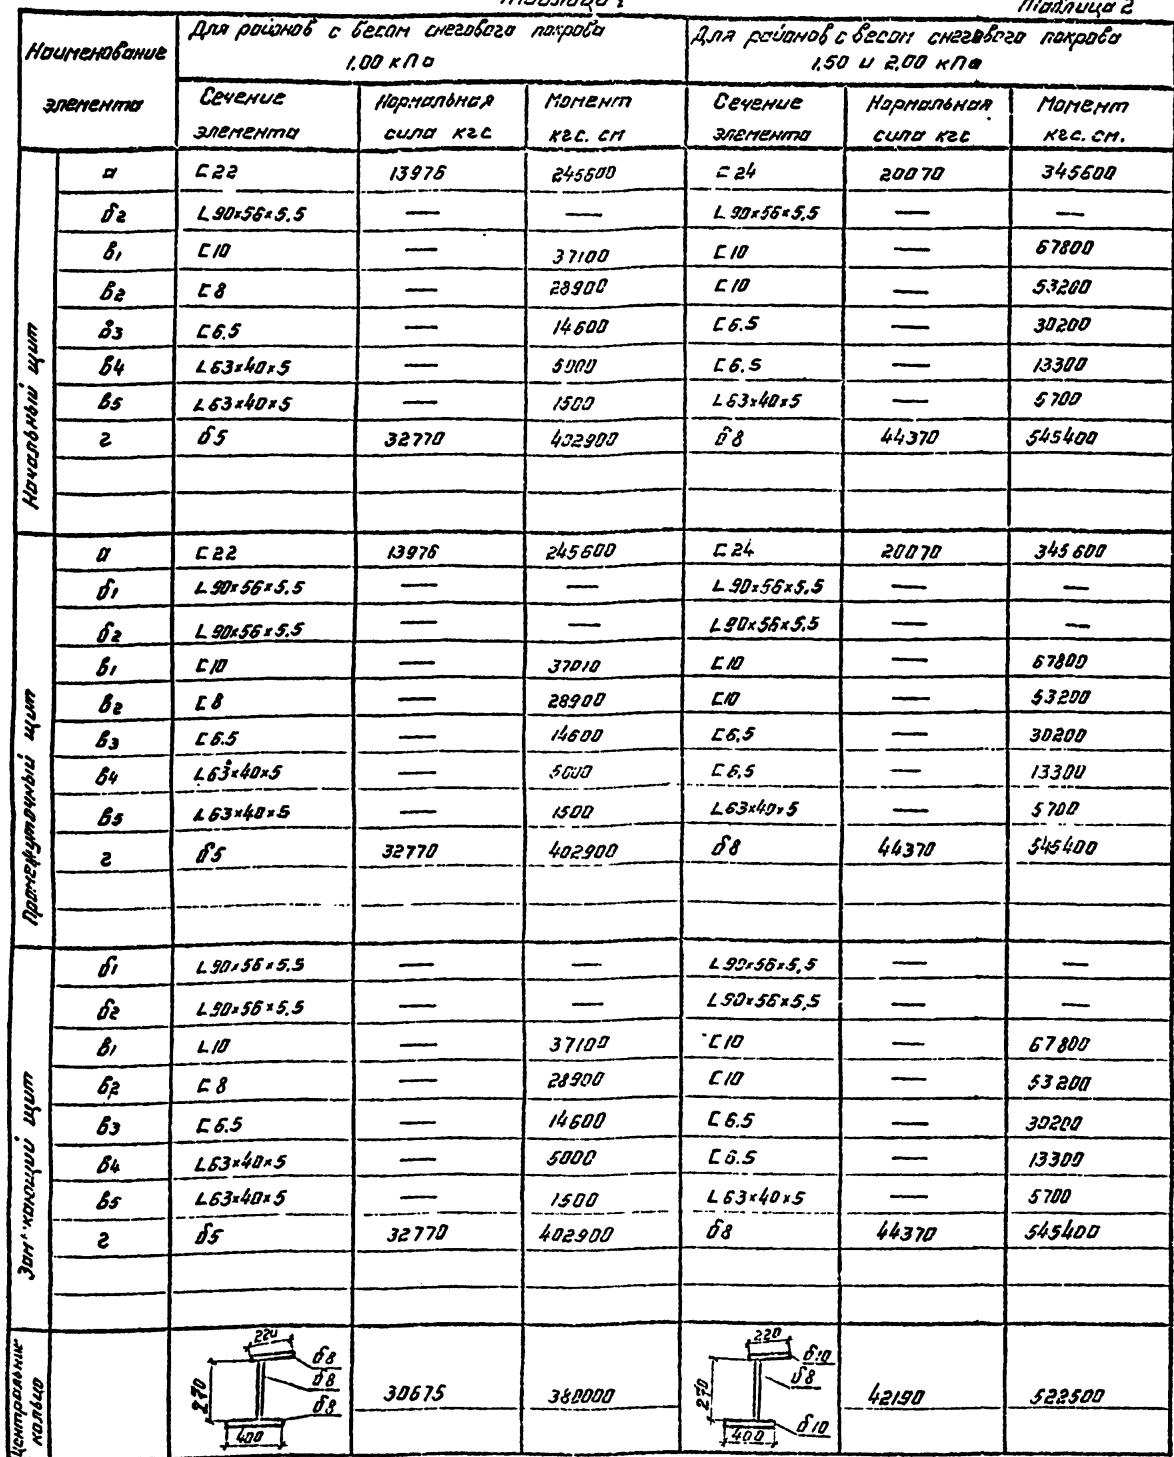 Таблица 1
Таблица 2
Наименование элемента
Для районов с весом снегового покрова 1,00 кПа
Для районов с весом снегового покрова 1,50 и 2,00 кПа
Сечение элемента Нормальная сила кгс Момент кгс. см Сечение элемента Нормальная сила кгс Момент кгс. см.
Начальный щит
а [22 13976 245600 [24 20070 345600
б2 L90×56×5,5 — — L90×56×5,5 — —
в1 [10 — 37100 [10 — 67800
в2 [8 — 28900 [10 — 53200
в3 [6.5 — 14600 [6.5 — 30200
в4 L63×40×5 — 5000 [6.5 — 13300
в5 L63×40×5 — 1500 L63×40×5 — 5700
г δ5 32770 402900 δ8 44370 545400
Промежуточный щит
а [22 13976 245600 [24 20070 345600
б1 L90×56×5,5 — — L90×56×5,5 — —
б2 L90×56×5,5 — — L90×56×5,5 — —
в1 [10 — 37010 [10 — 67800
в2 [8 — 28900 [10 — 53200
в3 [6.5 — 14600 [6,5 — 30200
в4 L63×40×5 — 5000 [6,5 — 13300
в5 L63×40×5 — 1500 L63×40×5 — 5700
г δ5 32770 402900 δ8 44370 545400
щит
б1 L90×56×5.5 — — L90×56×5,5 — —
б2 L90×56×5.5 — — L90×56×5,5 — —
в1 L10 — 37100 [10 — 67800
в2 [8 — 28900 [10 — 53200
в3 [6.5 — 14600 [6.5 — 30200
в4 L63×40×5 — 5000 [6.5 — 13300
в5 L63×40×5 — 1500 L63×40×5 — 5700
г δ5 32770 402900 δ8 44370 545400
Центральное кольцо
220 δ8 δ8 δ8 270 400
30675 380000
220 δ10 δ8 δ10 270 400
42190 522500